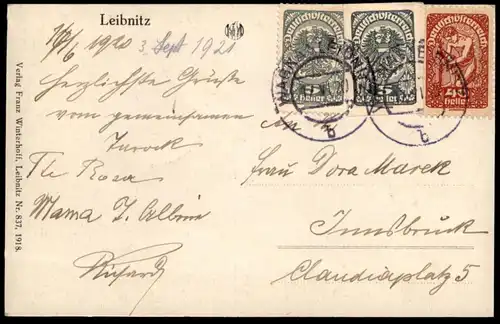 Leibnitz
16/6 1920 3. Sept 1921
Herzlichste Grüsse
vom gemeinsamen
Tarock
Tte Rosa
Mama J. Albine
Richard
Frau Dora Marek
Innsbruck
Claudiaplatz 5
Deutschösterreich
5 Heller
Deutschösterreich
5 Heller
Deutschösterreich
Heller
LEIBNITZ
b
b
Verlag Franz Winterholl, Leibnitz Nr. 837, 1918.